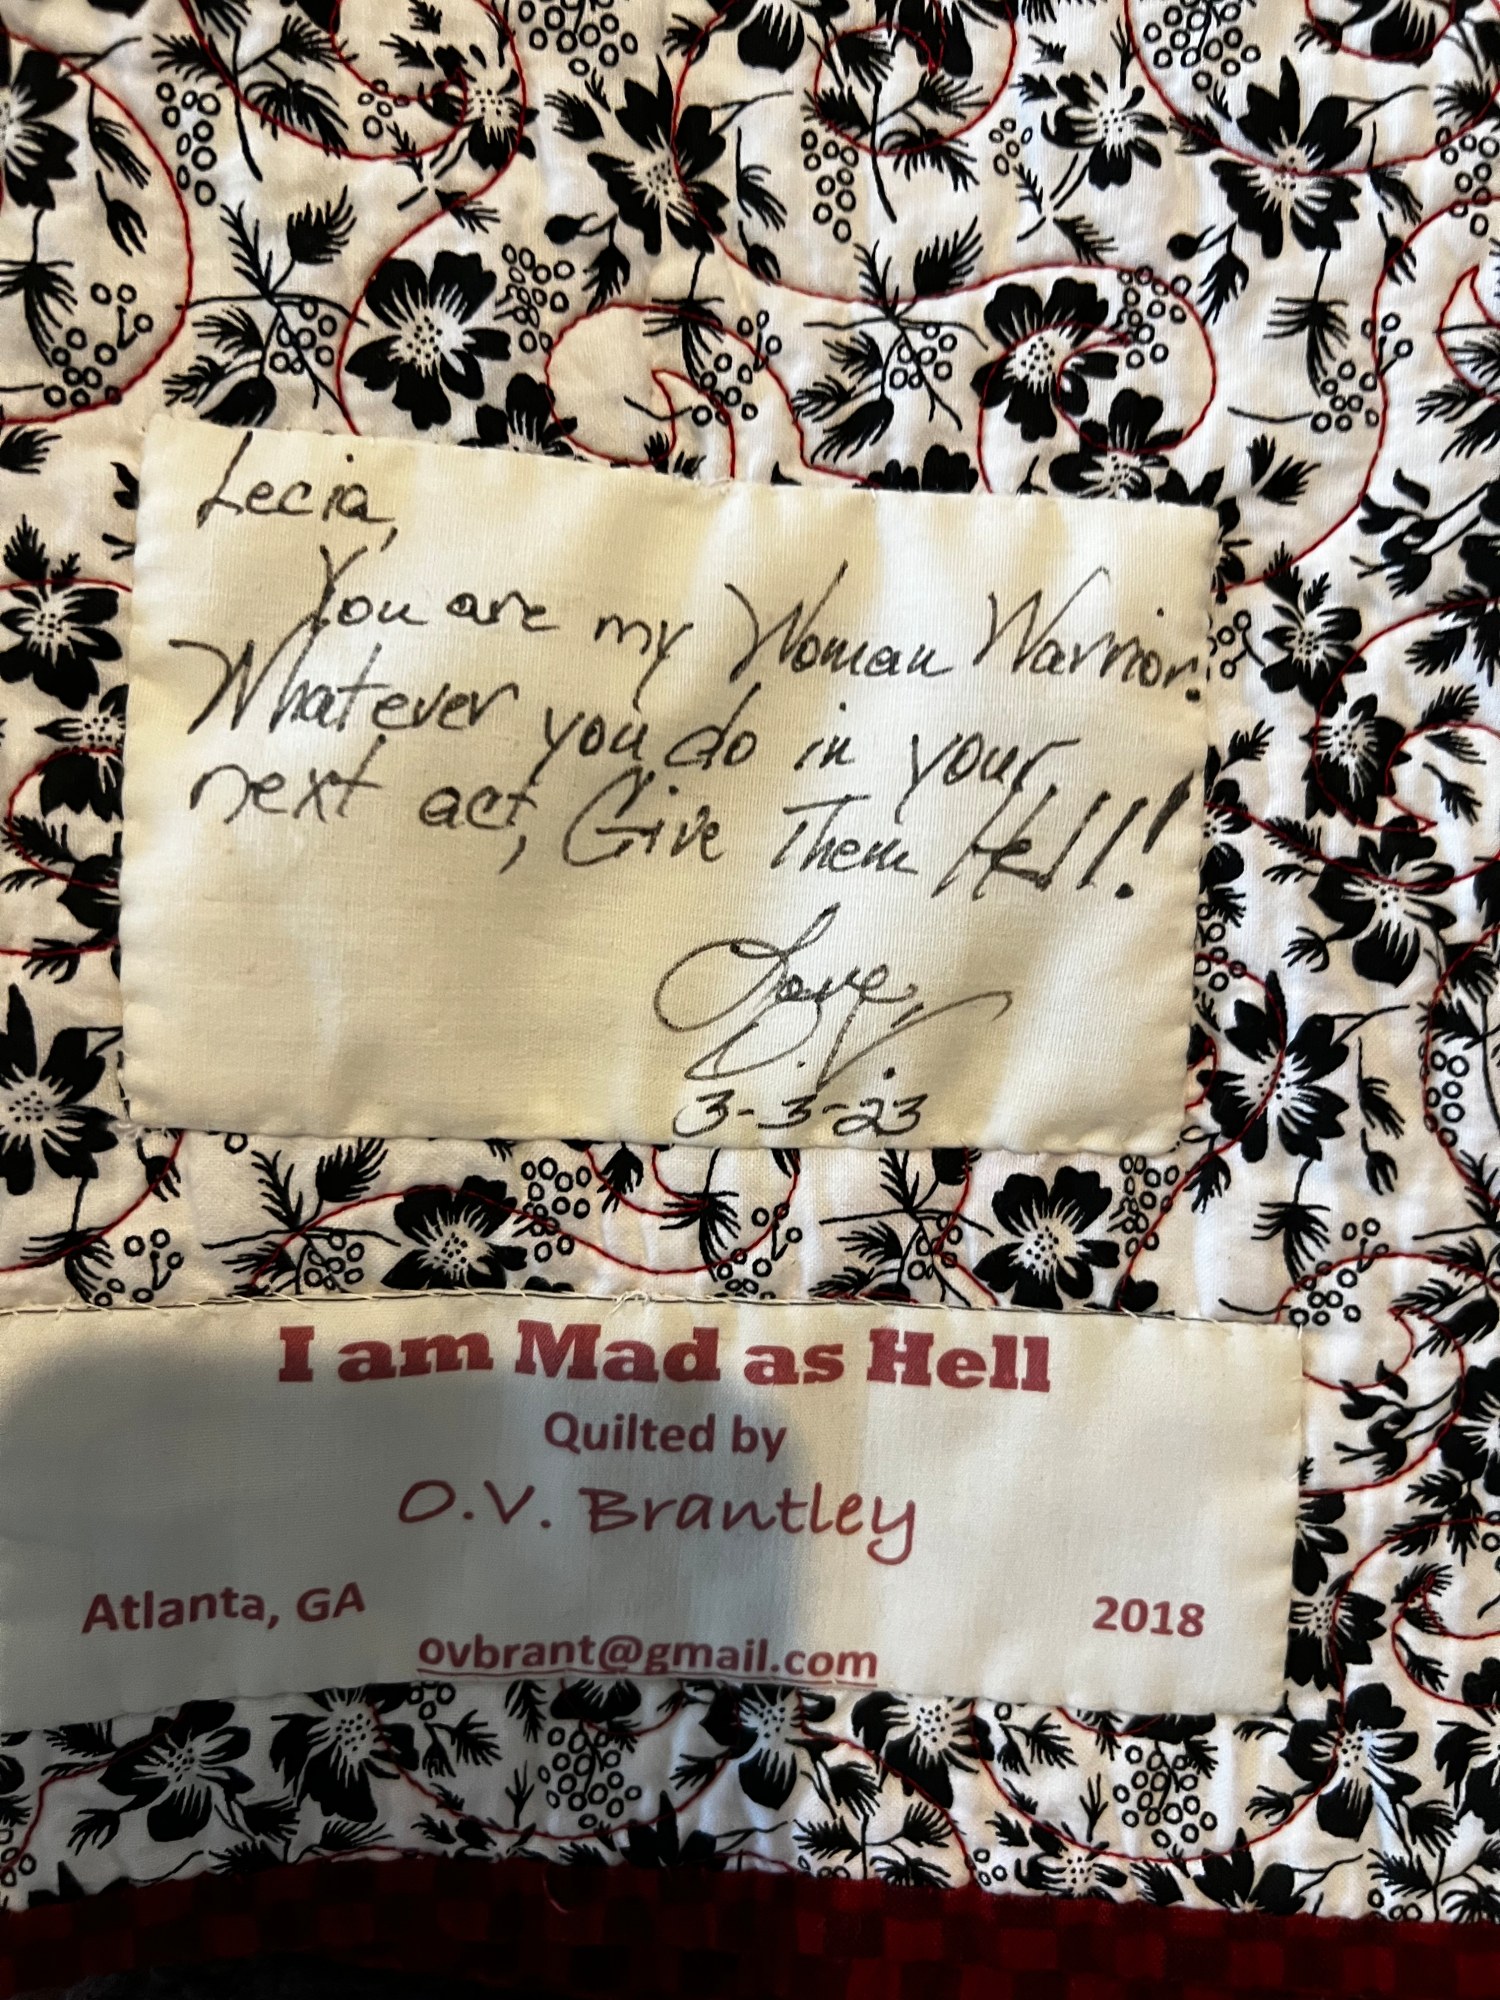 Lecia,
You are my Woman Warrior.
Whatever you do in your
next act, Give Them Hell!
Love,
O.V.
3-3-23
I am Mad as Hell
Quilted by
O.V. Brantley
Atlanta, GA 2018
ovbrant@gmail.com